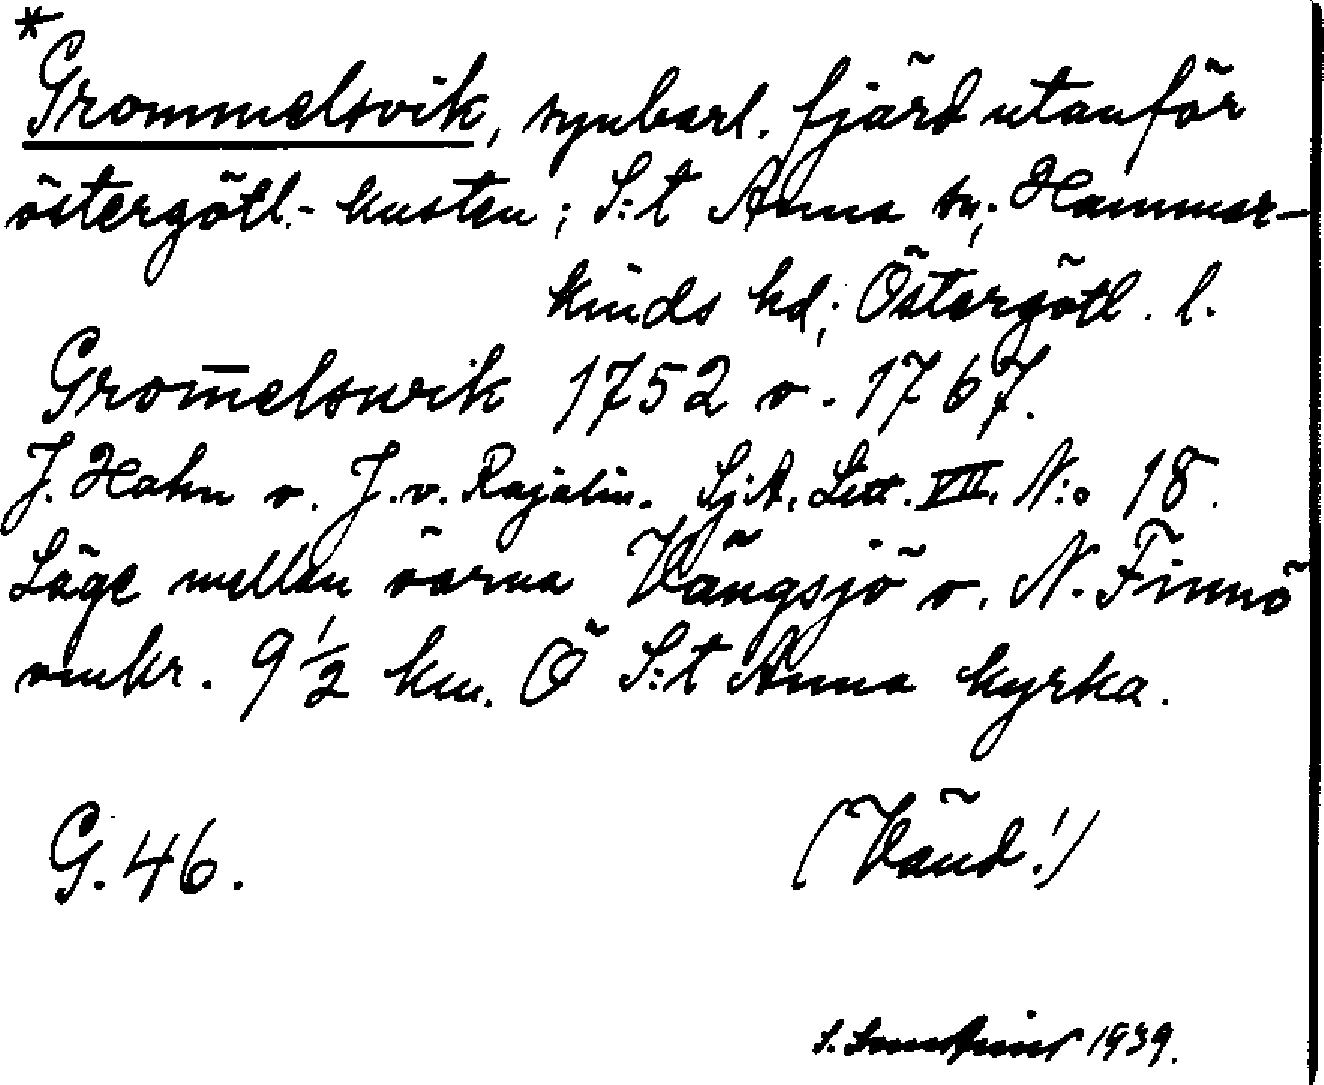 *
Grommelsvik, synbarl. fjärd utanför
östergötl.- kusten; S:t Anna sn; Hammar-
kinds hd; Östergötl. l.
Grom̅elswik 1752 o. 1767.
J. Hahn o. J. v. Rajalin. Sj.A. Litt. VII. N:o 18.
Läge mellan öarna Vängsjö o. N. Finnö
omkr. 9 1/2 km. Ö S:t Anna kyrka.
G. 46. (Vänd!)
S. 1939.